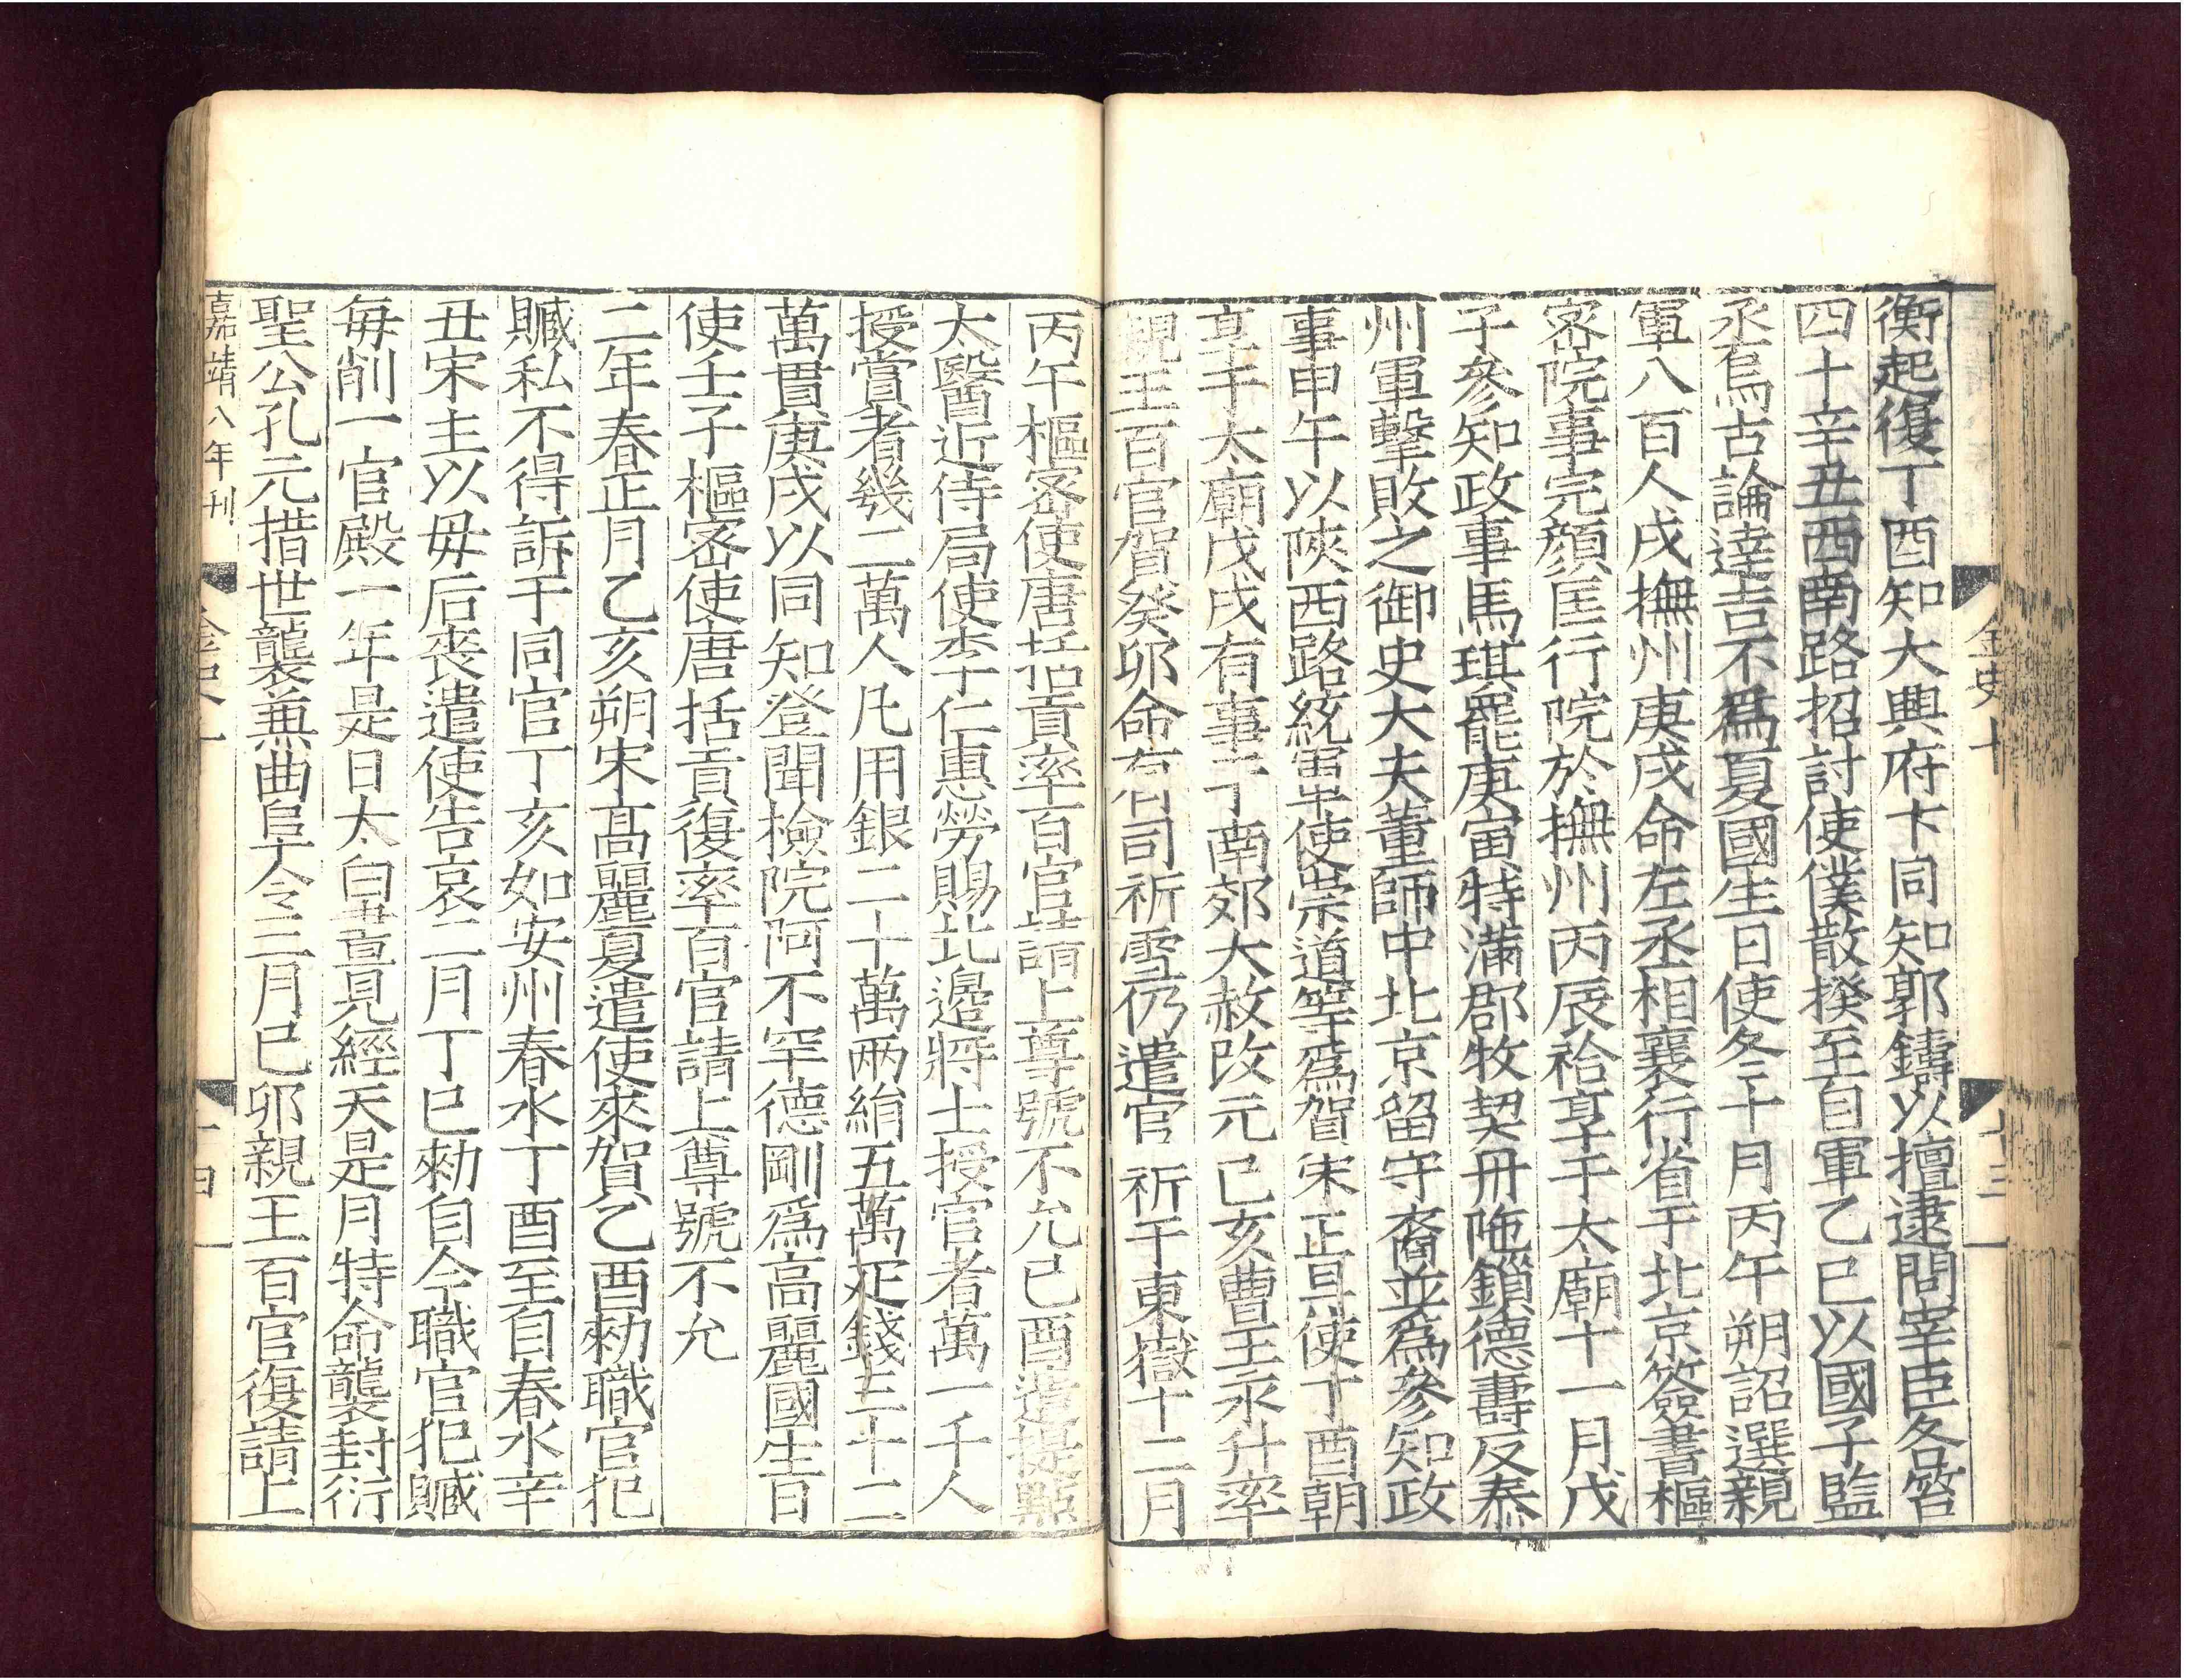 衡起復丁酉知大興府卞同知郭鑄以擅逮問宰臣各笞
四十辛丑西南路招討使僕散揆至自軍乙巳以國子監
丞烏古論達吉不爲夏國生日使冬十月丙午朔詔選親
軍八百人戍撫州庚戌命左丞相襄行省于北京簽書樞
密院事完顏匡行院於撫州丙辰祫享于太廟十一月戊
子參知政事馬琪罷庚寅特滿郡牧契丹陁鎖德壽反泰
州軍擊敗之御史大夫董師中北京留守裔並爲參知政
事甲午以陝西路統軍使崇道等爲賀宋正旦使丁酉朝
享于太廟戊戌有事于南郊大赦改元己亥曹王永升率
親王百官賀癸卯命有司祈雪仍遣官祈于東嶽十二月
丙午樞密使唐括貢率百官請上尊號不允己酉遣提點
太醫近侍局使李仁惠勞賜北邊將士授官者萬一千人
授賞者幾二萬人凡用銀二十萬兩絹五萬疋錢三十二
萬貫庚戌以同知登聞檢院阿不罕德剛爲高麗國生日
使壬子樞密使唐括貢復率百官請上尊號不允
二年春正月乙亥朔宋高麗夏遣使來賀乙酉勑職官犯
贓私不得訴于同官丁亥如安州春水丁酉至自春水辛
丑宋主以母后喪遣使告哀二月丁巳勑自今職官犯贓
每削一官殿一年是日太白晝見經天是月特命襲封衍
聖公孔元措世襲兼曲阜令三月己卯親王百官復請上
嘉靖八年刊
金史十
十三
十四